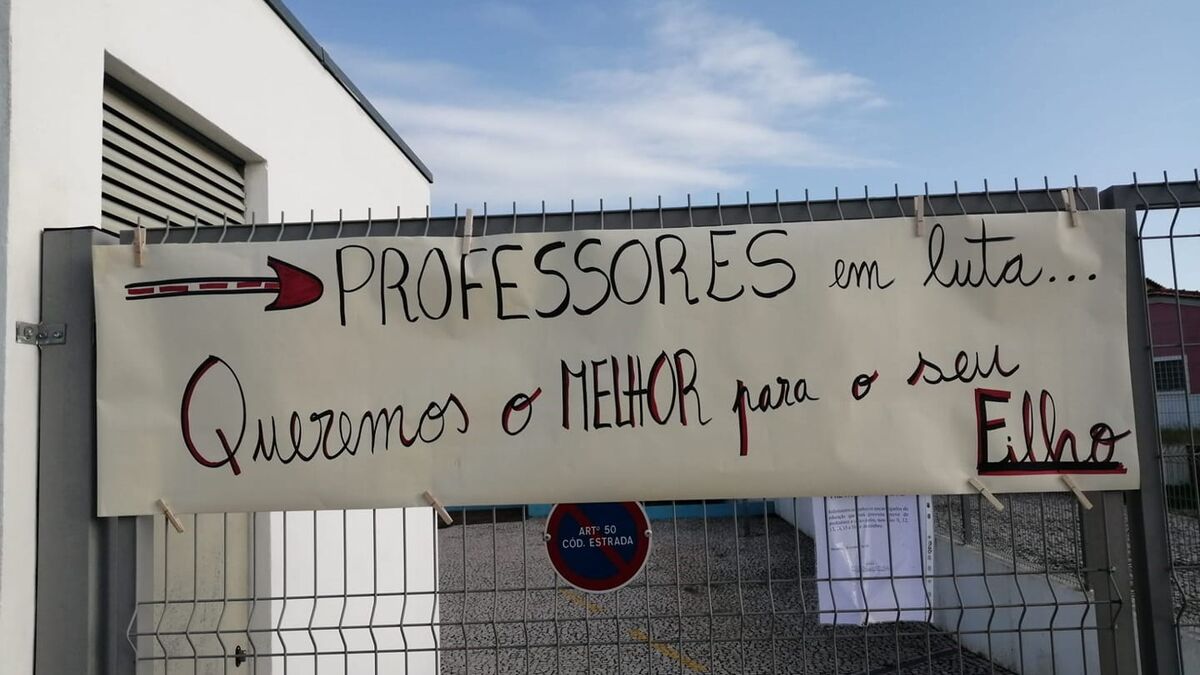 PROFESSORES em luta...
Queremos o MELHOR para o seu
Filho
ARTº 50
CÓD. ESTRADA